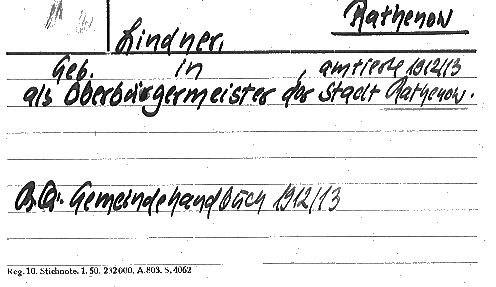 Rathenow
Lindner,
Geb. in , amtierte 1912/13
als Oberbürgermeister der Stadt Rathenow.
B.Qu. Gemeindehandbuch 1912/13
Reg. 10. Stichnote. 1. 50. 232000. A. 803. S. 4062